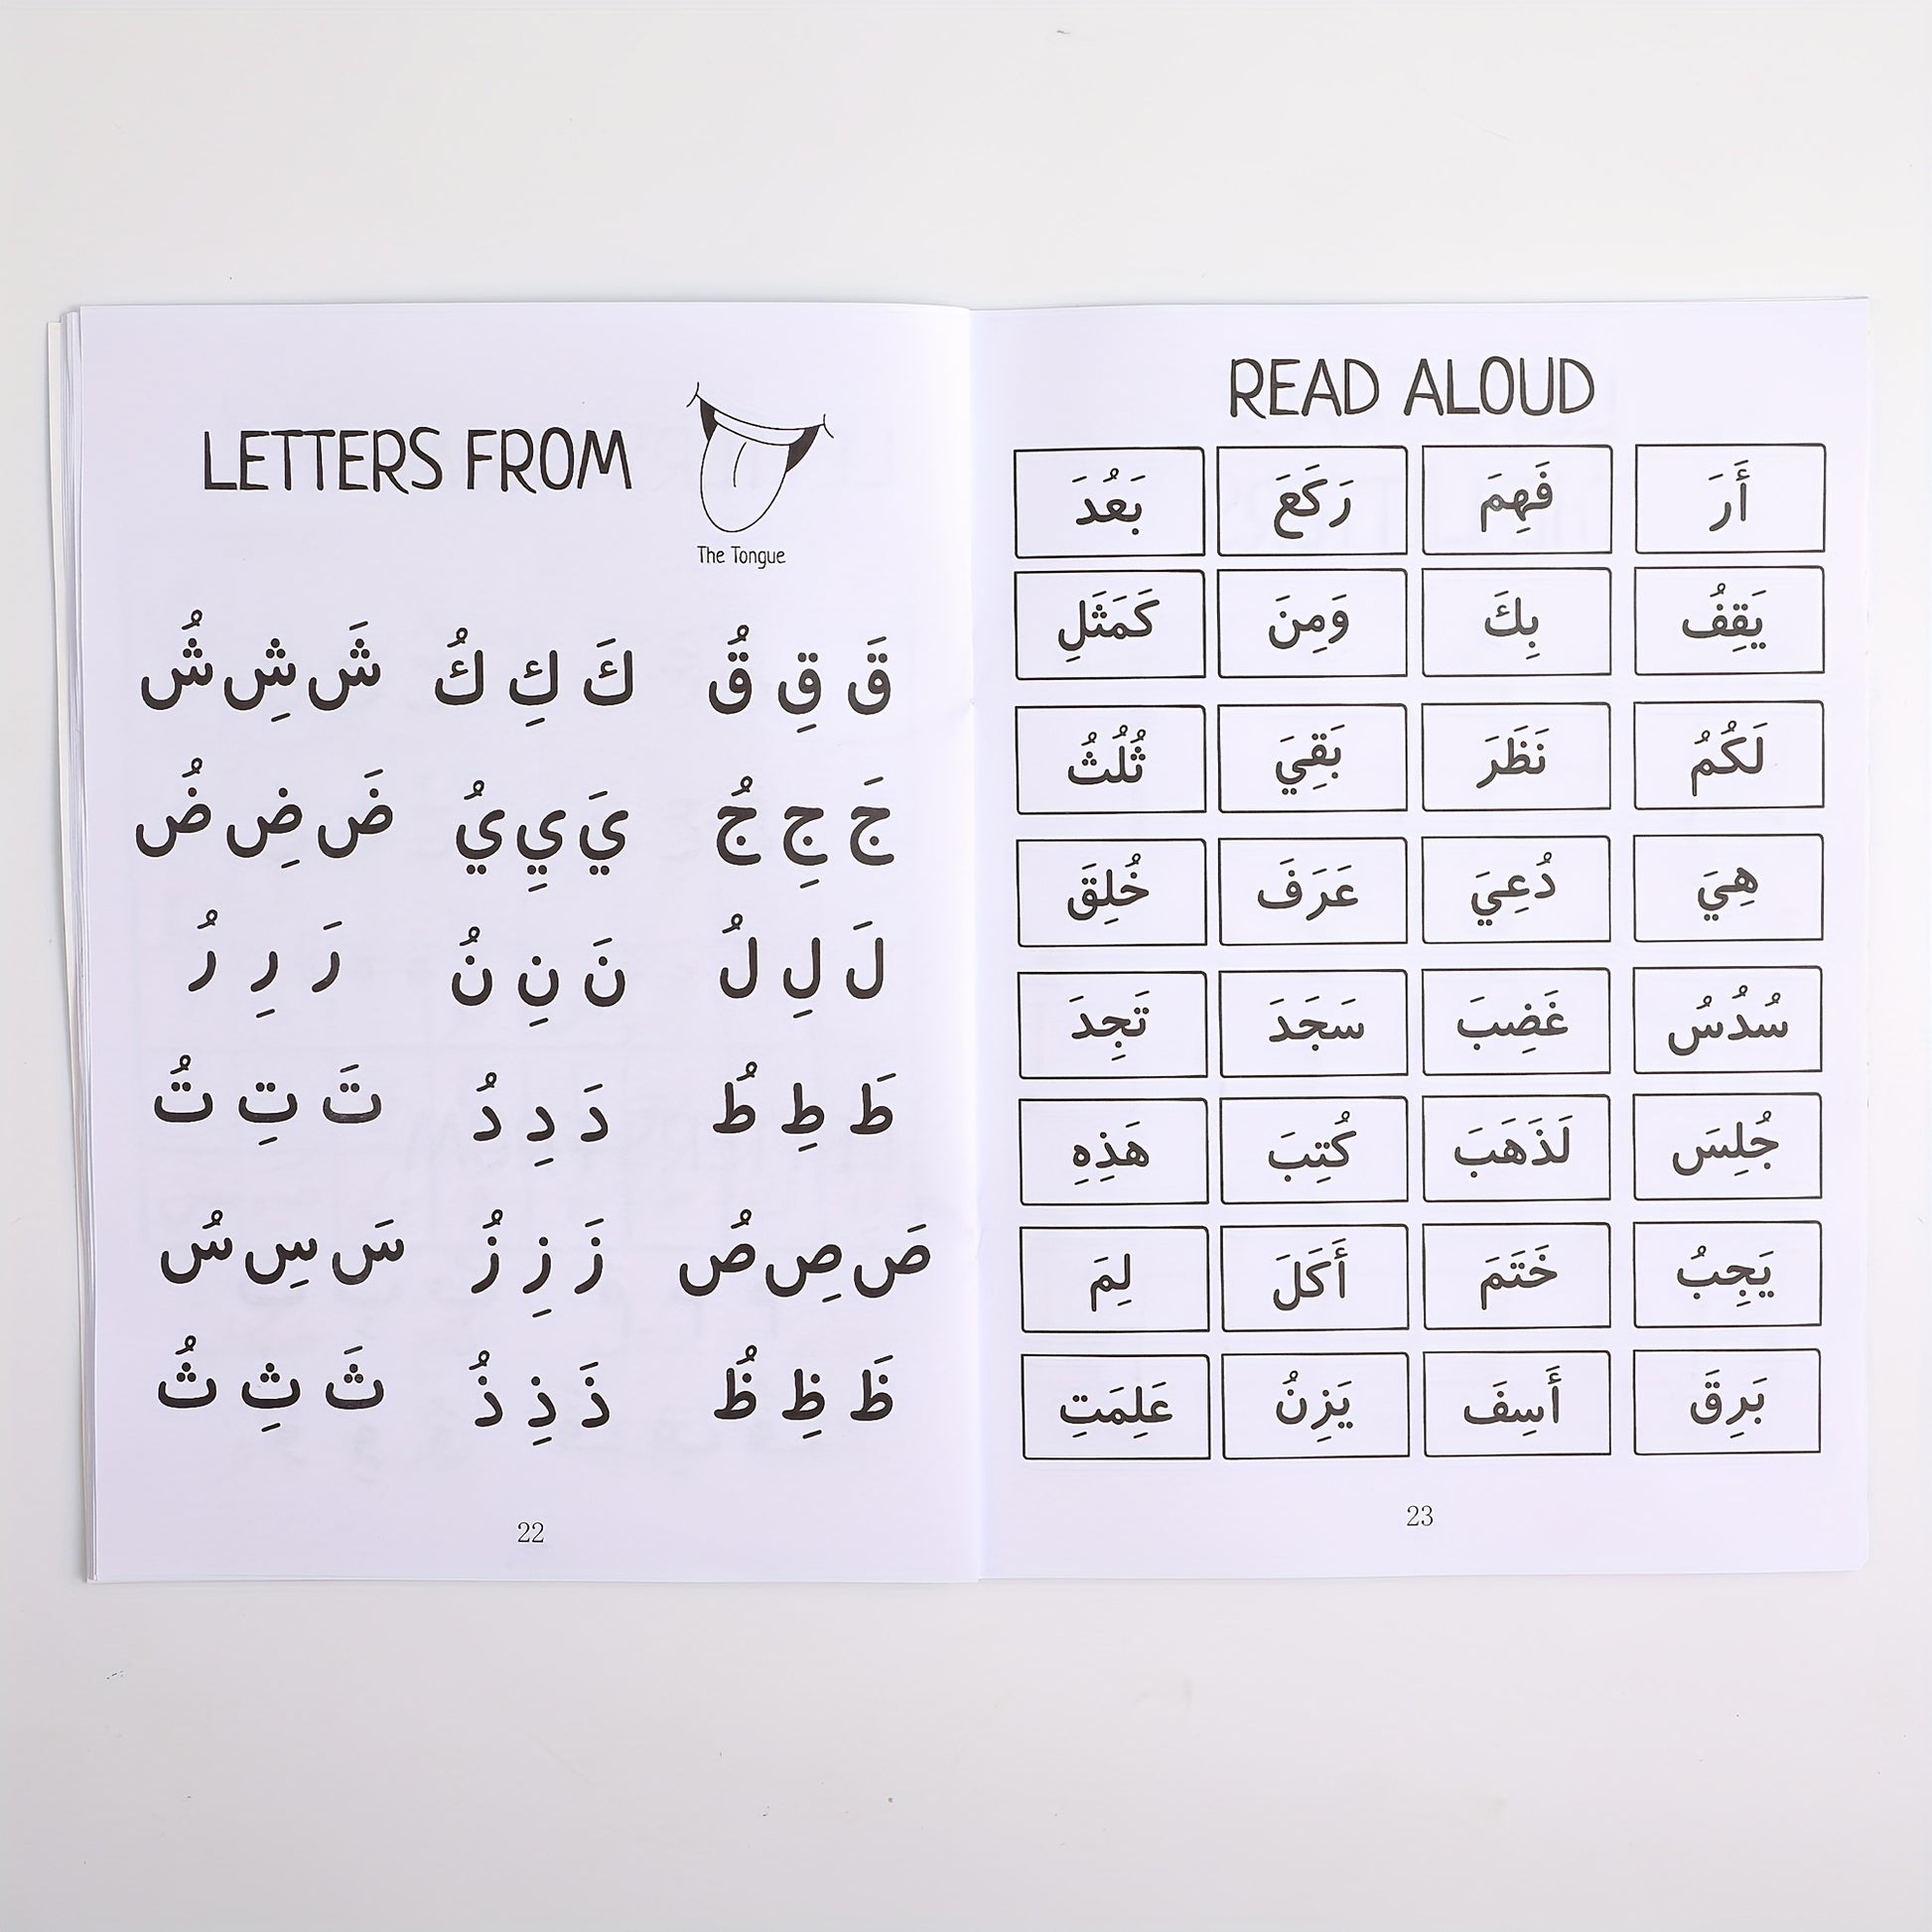 LETTERS FROM
The Tongue
قَ قِ قُ كَ كِ كُ شَ شِ شُ
جَ جِ جُ يَ يِ يُ ضَ ضِ ضُ
لَ لِ لُ نَ نِ نُ رَ رِ رُ
طَ طِ طُ دَ دِ دُ تَ تِ تُ
صَ صِ صُ زَ زِ زُ سَ سِ سُ
ظَ ظِ ظُ ذَ ذِ ذُ ثَ ثِ ثُ
22
READ ALOUD
أَرَ فَهِمَ رَكَعَ بَعُدَ
يَقِفُ بِكَ وَمِنَ كَمَثَلِ
لَكُمُ نَظَرَ بَقِيَ ثُلُثُ
هِيَ دُعِيَ عَرَفَ خُلِقَ
سُدُسُ غَضِبَ سَجَدَ تَجِدَ
جُلِسَ لَذَهَبَ كُتِبَ هَذِهِ
يَجِبُ خَتَمَ أَكَلَ لِمَ
بَرِقَ أَسِفَ يَزِنُ عَلِمَتِ
23